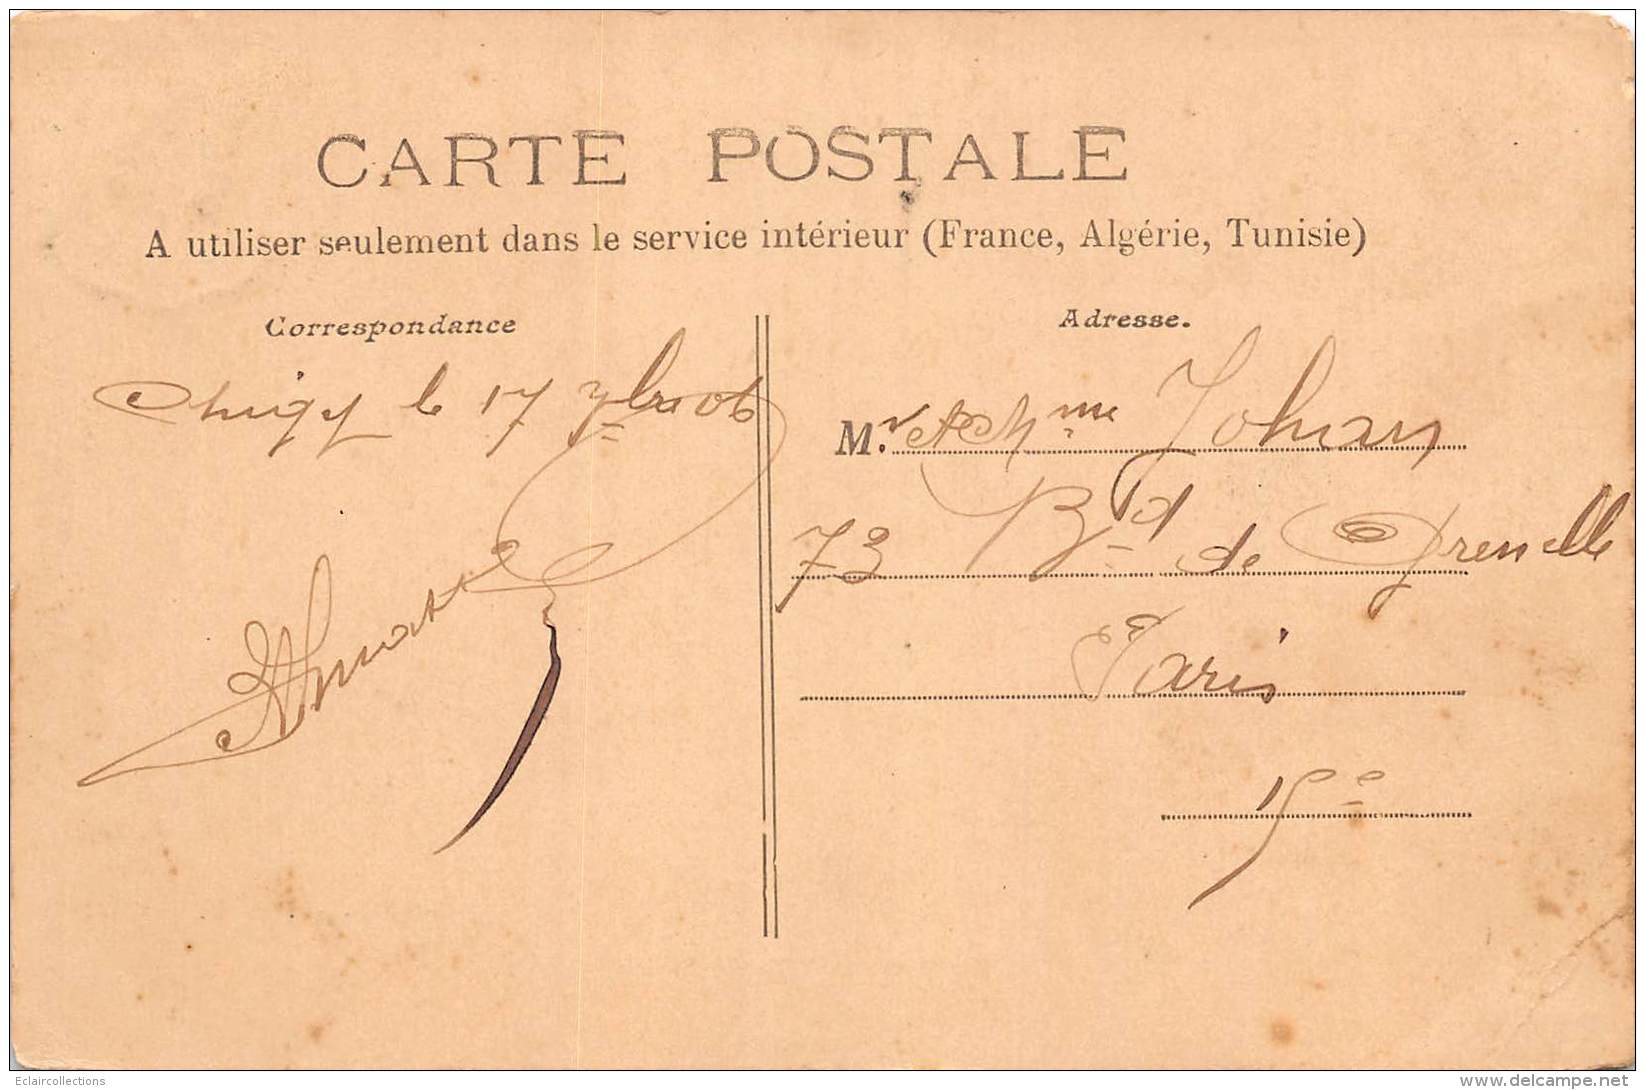 CARTE POSTALE
A utiliser seulement dans le service intérieur (France, Algérie, Tunisie)
Correspondance
Adresse.
le 17 7bre 06
M.r et Mme Johan
73 Bd de Grenelle
Paris
15e
Eclaircollections
delcampe.net